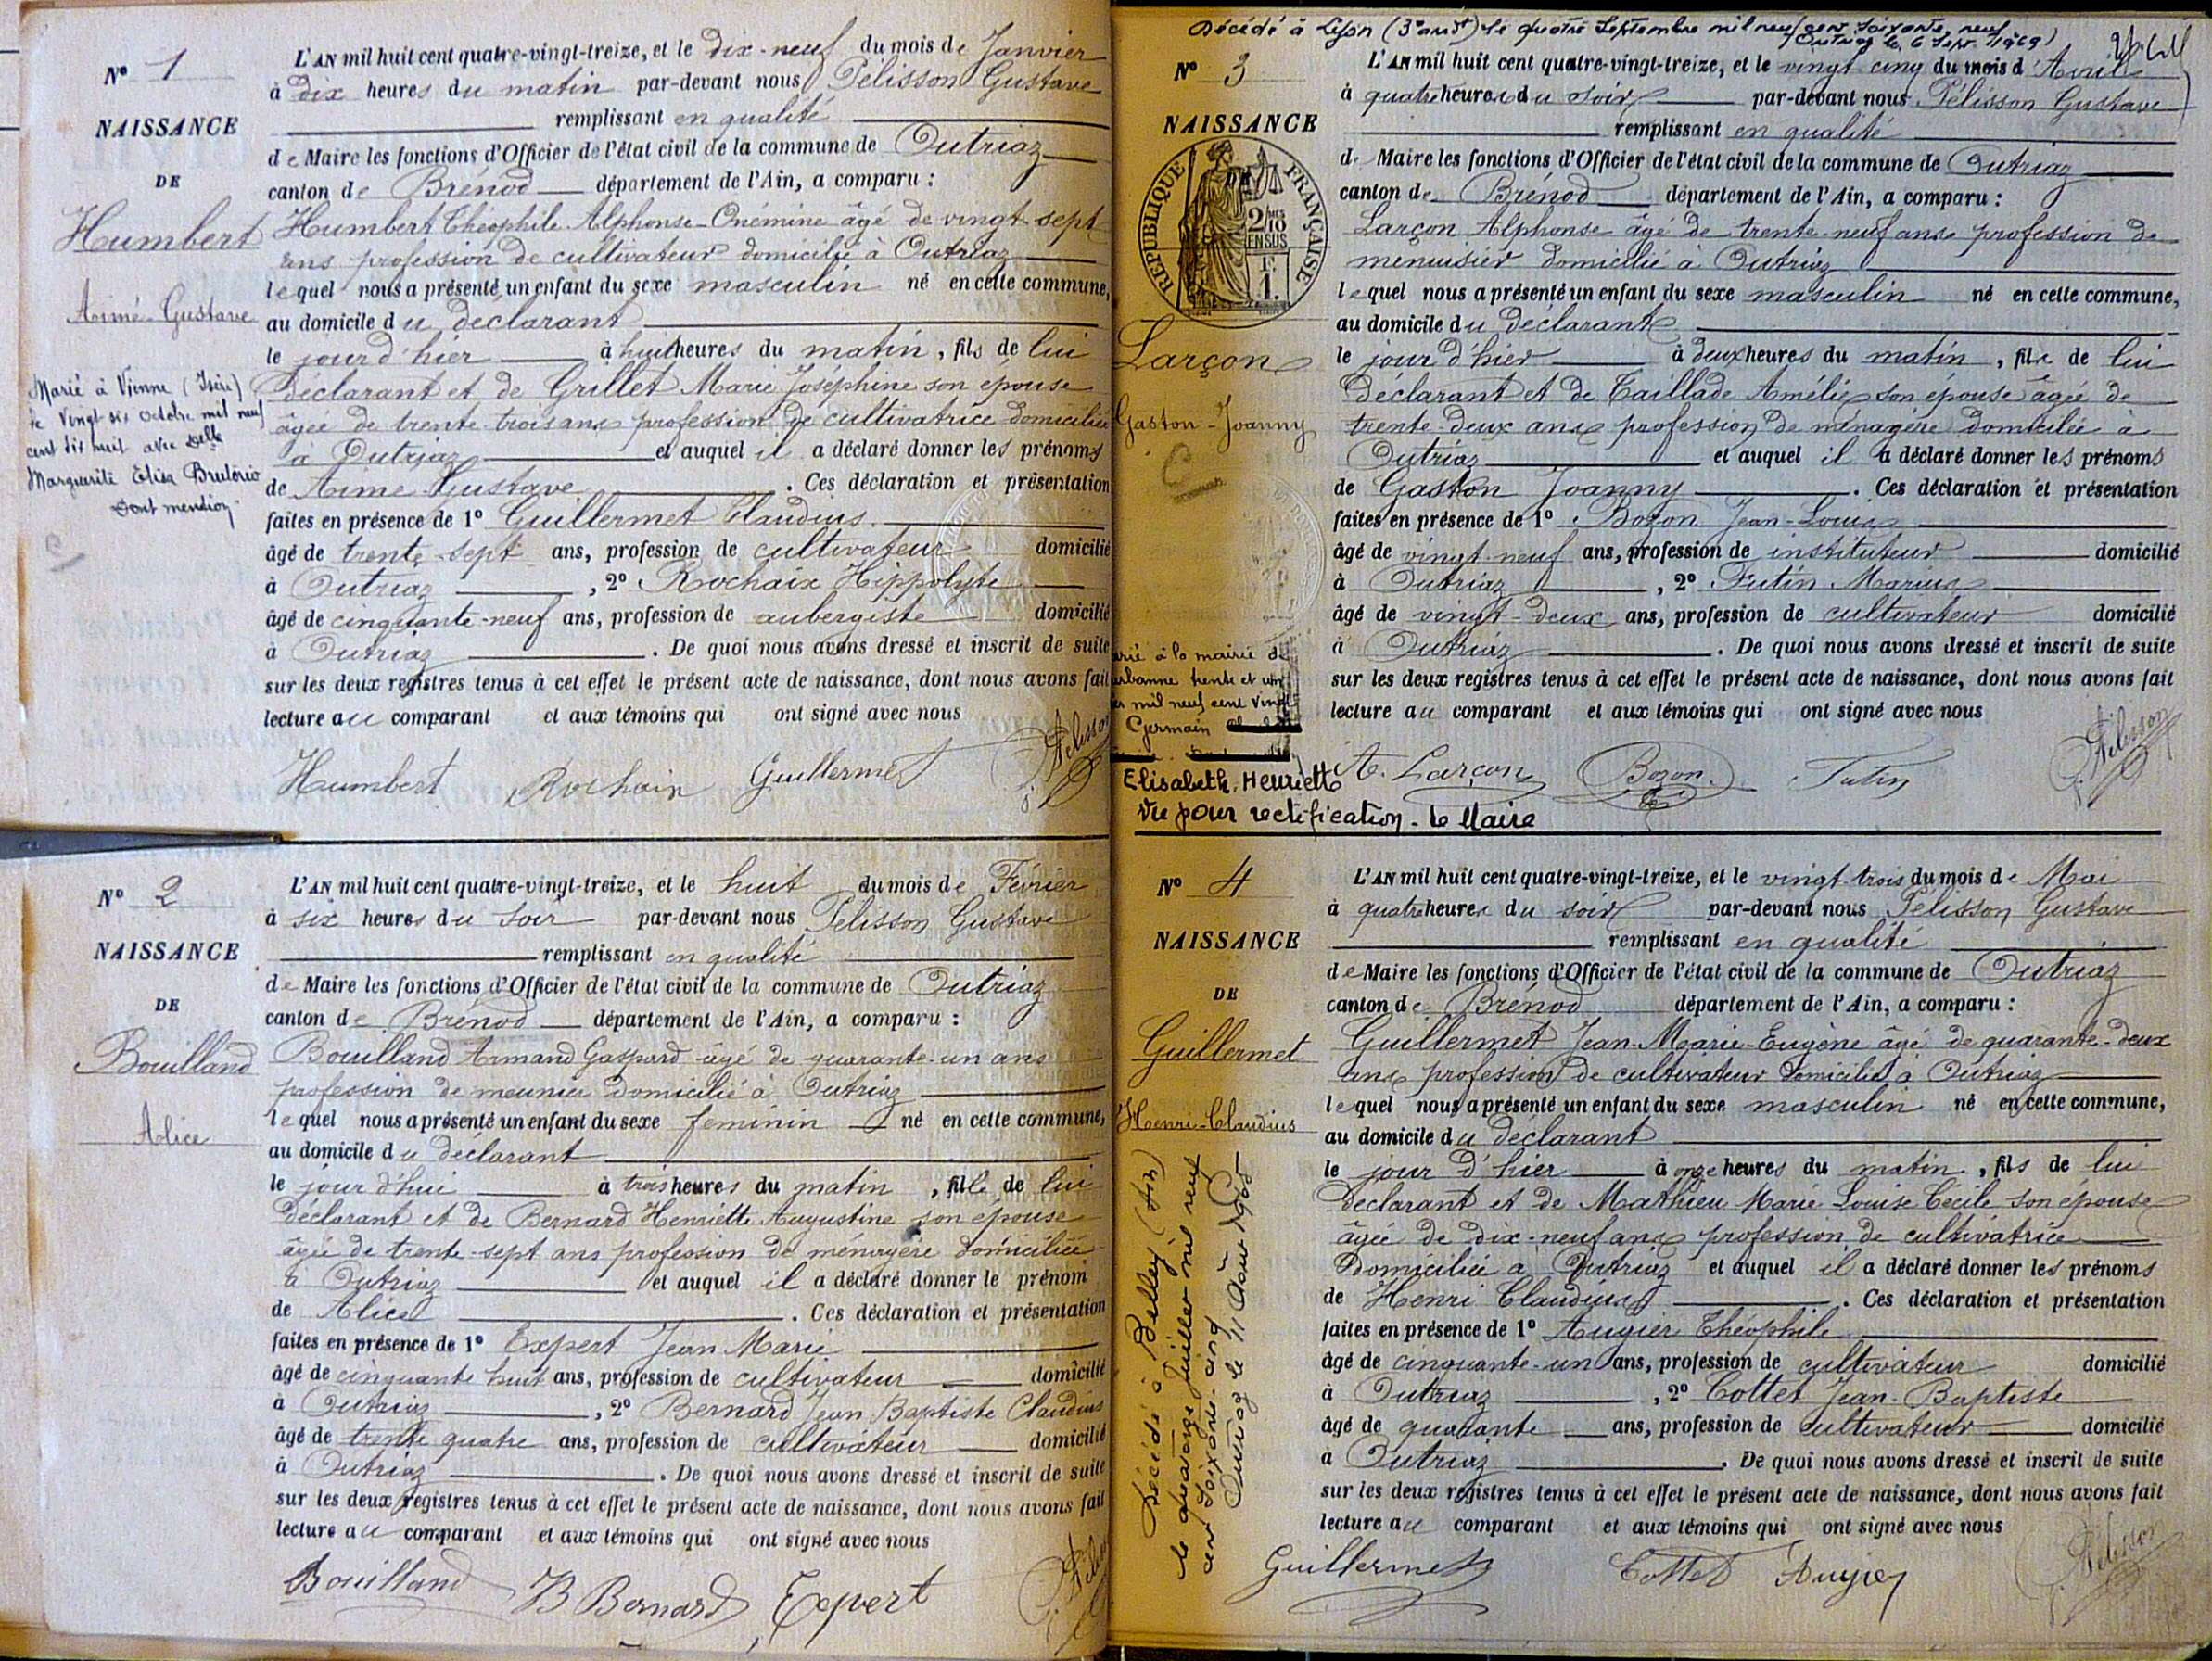 N° 1
NAISSANCE
DE
Humbert
Aimé-Gustave
Marié à Vienne (Isère)
le vingt six octobre mil neuf
cent dix huit avec Delle
Marguerite Elisa
Dont mention
L'AN mil huit cent quatre-vingt-treize, et le dix-neuf du mois de Janvier
à dix heures du matin par-devant nous Pélisson Gustave
remplissant en qualité
de Maire les fonctions d'Officier de l'état civil de la commune de Outriaz
canton de Brénod département de l'Ain, a comparu :
Humbert Théophile Alphonse-Onémine âgé de vingt-sept
ans profession de cultivateur domicilié à Outriaz
lequel nous a présenté un enfant du sexe masculin né en cette commune,
au domicile du déclarant
le jour d'hier à huit heures du matin, fils de lui
déclarant et de Grillet Marie Joséphine son épouse
âgée de trente trois ans profession de cultivatrice domiciliée
à Outriaz et auquel il a déclaré donner les prénoms
de Aimé Gustave . Ces déclaration et présentation
faites en présence de 1° Guillermet Claudius
âgé de trente-sept ans, profession de cultivateur domicilié
à Outriaz , 2° Rochaix Hippolyte
âgé de cinquante-neuf ans, profession de aubergiste domicilié
à Outriaz . De quoi nous avons dressé et inscrit de suite
sur les deux registres tenus à cet effet le présent acte de naissance, dont nous avons fait
lecture au comparant et aux témoins qui ont signé avec nous
Humbert Rochaix Guillermet Pélisson
N° 2
NAISSANCE
DE
Bouilland
Alice
L'AN mil huit cent quatre-vingt-treize, et le huit du mois de Février
à six heures du soir par-devant nous Pélisson Gustave
remplissant en qualité
de Maire les fonctions d'Officier de l'état civil de la commune de Outriaz
canton de Brénod département de l'Ain, a comparu :
Bouilland Armand Gaspard âgé de quarante-un ans
profession de meunier domicilié à Outriaz
lequel nous a présenté un enfant du sexe féminin né en cette commune,
au domicile du déclarant
le jour d'hui à trois heures du matin, fille de lui
déclarant et de Bernard Henriette Augustine son épouse
âgée de trente-sept ans profession de ménagère domiciliée
à Outriaz et auquel il a déclaré donner le prénom
de Alice . Ces déclaration et présentation
faites en présence de 1° Expert Jean Marie
âgé de cinquante huit ans, profession de cultivateur domicilié
à Outriaz , 2° Bernard Jean Baptiste Claudius
âgé de trente quatre ans, profession de cultivateur domicilié
à Outriaz . De quoi nous avons dressé et inscrit de suite
sur les deux registres tenus à cet effet le présent acte de naissance, dont nous avons fait
lecture au comparant et aux témoins qui ont signé avec nous
Bouilland JB Bernard Expert
Décédé à Lyon (3° arrdt) le quatre Septembre mil neuf cent soixante neuf
Outriaz le 6 Sept. 1969)
N° 3
NAISSANCE
DE
REPUBLIQUE FRANÇAISE
2/10 EN SUS
Larçon
Gaston-Joanny
arié à la mairie de
urbanne trente et un
mil neuf cent vingt
Germain
Elisabeth, Henriette
Vu pour rectification - Le Maire
L'AN mil huit cent quatre-vingt-treize, et le vingt cinq du mois d'Avril
à quatre heures du soir par-devant nous Pélisson Gustave
remplissant en qualité
de Maire les fonctions d'Officier de l'état civil de la commune de Outriaz
canton de Brénod département de l'Ain, a comparu :
Larçon Alphonse âgé de trente-neuf ans profession de
menuisier domicilié à Outriaz
lequel nous a présenté un enfant du sexe masculin né en cette commune,
au domicile du déclarant
le jour d'hier à deux heures du matin, fils de lui
déclarant et de Taillade Amélie son épouse âgée de
trente-deux ans profession de ménagère domiciliée à
Outriaz et auquel il a déclaré donner les prénoms
de Gaston Joanny . Ces déclaration et présentation
faites en présence de 1° Bozon Jean-Louis
âgé de vingt-neuf ans, profession de instituteur domicilié
à Outriaz , 2° Tutin Marius
âgé de vingt-deux ans, profession de cultivateur domicilié
à Outriaz . De quoi nous avons dressé et inscrit de suite
sur les deux registres tenus à cet effet le présent acte de naissance, dont nous avons fait
lecture au comparant et aux témoins qui ont signé avec nous
A. Larçon Bozon Tutin Pélisson
N° 4
NAISSANCE
DE
Guillermet
Henri-Claudius
Décédé à Belley (Ain)
le quatorze Juillet mil neuf
cent soixante-cinq
Outriaz le 11 Août 1965
L'AN mil huit cent quatre-vingt-treize, et le vingt-trois du mois de Mai
à quatre heures du soir par-devant nous Pélisson Gustave
remplissant en qualité
de Maire les fonctions d'Officier de l'état civil de la commune de Outriaz
canton de Brénod département de l'Ain, a comparu :
Guillermet Jean-Marie-Eugène âgé de quarante-deux
ans profession de cultivateur domicilié à Outriaz
lequel nous a présenté un enfant du sexe masculin né en cette commune,
au domicile du déclarant
le jour d'hier à onze heures du matin, fils de lui
déclarant et de Mathieu Marie Louise Cécile son épouse
âgée de dix-neuf ans profession de cultivatrice
domiciliée à Outriaz et auquel il a déclaré donner les prénoms
de Henri Claudius . Ces déclaration et présentation
faites en présence de 1° Augier Théophile
âgé de cinquante-un ans, profession de cultivateur domicilié
à Outriaz , 2° Cottet Jean-Baptiste
âgé de quarante ans, profession de cultivateur domicilié
à Outriaz . De quoi nous avons dressé et inscrit de suite
sur les deux registres tenus à cet effet le présent acte de naissance, dont nous avons fait
lecture au comparant et aux témoins qui ont signé avec nous
Guillermet Cottet Augier Pélisson